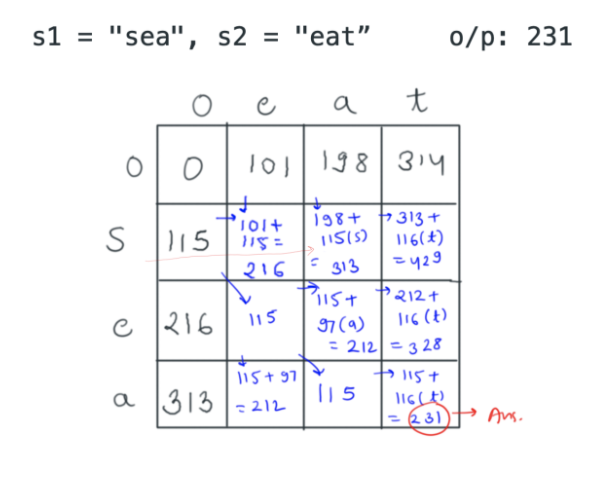 s1 = "sea", s2 = "eat” o/p: 231
0 e a t
0 0 101 198 314
s 115 101+ 115= 216 198+ 115(s) = 313 313+ 116(t) =429
e 216 115 115+ 97(a) = 212 212+ 116(t) = 328
a 313 115+97 =212 115 115+ 116(t) = 231 Ans.